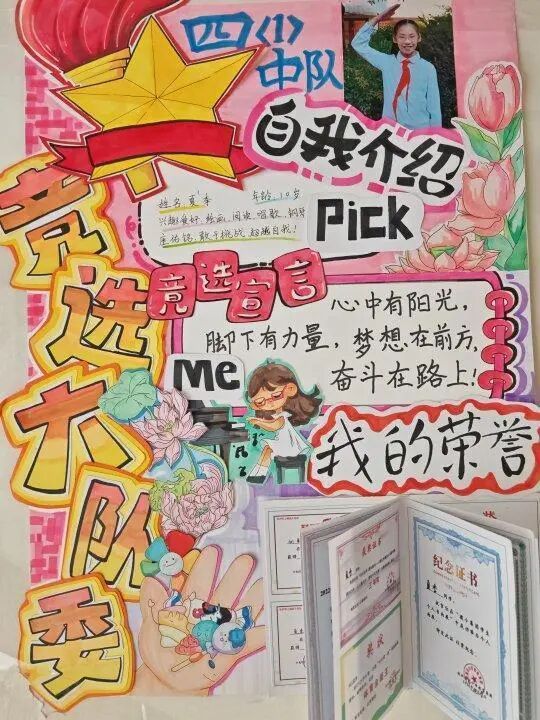 四〈1〉
中队
自我介绍
姓名:夏季 年龄:10岁
兴趣爱好:绘画、阅读、唱歌、钢琴
座右铭:敢于挑战,超越自我!
Pick
竞选大队委
竞选宣言
心中有阳光,
脚下有力量,梦想在前方,
奋斗在路上!
Me
我的荣誉
纪念证书